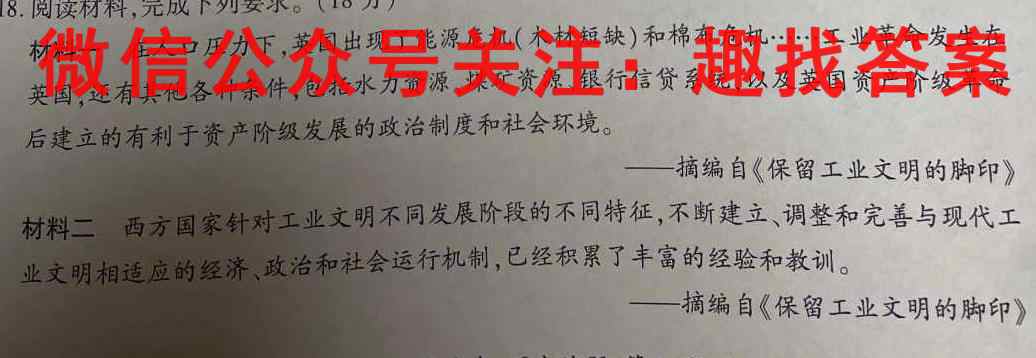 18.阅读材料,完成下列要求。(18分)
材料一 在人口压力下,英国出现了能源危机(木材短缺)和棉布危机……工业革命发生在
微信公众号关注:趣找答案
英国,还有其他各种条件,包括水力资源、煤矿资源、银行信贷系统,以及英国资产阶级革命
后建立的有利于资产阶级发展的政治制度和社会环境。
——摘编自《保留工业文明的脚印》
材料二 西方国家针对工业文明不同发展阶段的不同特征,不断建立、调整和完善与现代工
业文明相适应的经济、政治和社会运行机制,已经积累了丰富的经验和教训。
——摘编自《保留工业文明的脚印》